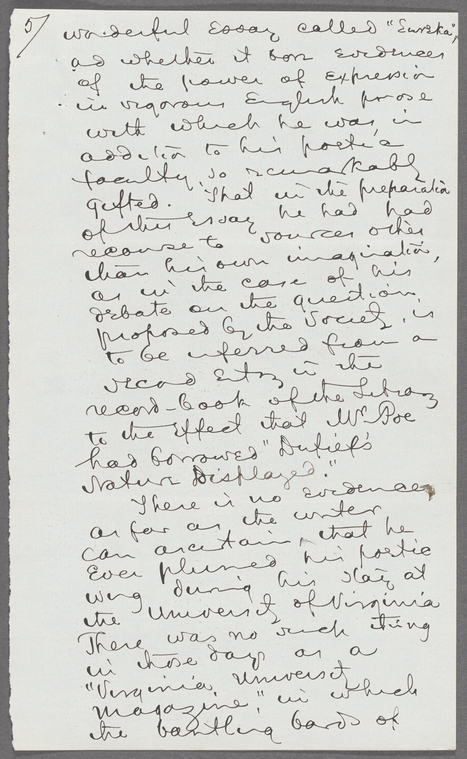 5/ wonderful Essay called "Eureka",
and whether it bore evidences
of the power of expression
in vigorous English prose
with which he was in
addition to his poetic
faculty so remarkably
gifted. That in the preparation
of this Essay he had had
recourse to sources other
than his own imagination,
as in the case of his
debate on the question
proposed by the Society, is
to be inferred from a
second Entry in the
record-book of the Library
to the Effect that Mr Poe
had borrowed "Dufief's
Nature Displayed."
There is no evidence,
as far as the writer
can ascertain, that he
Ever plumed his poetic
wing during his stay at
the University of Virginia
There was no such thing
in those days as a
"Virginia University
Magazine," in which
the bantling bards of